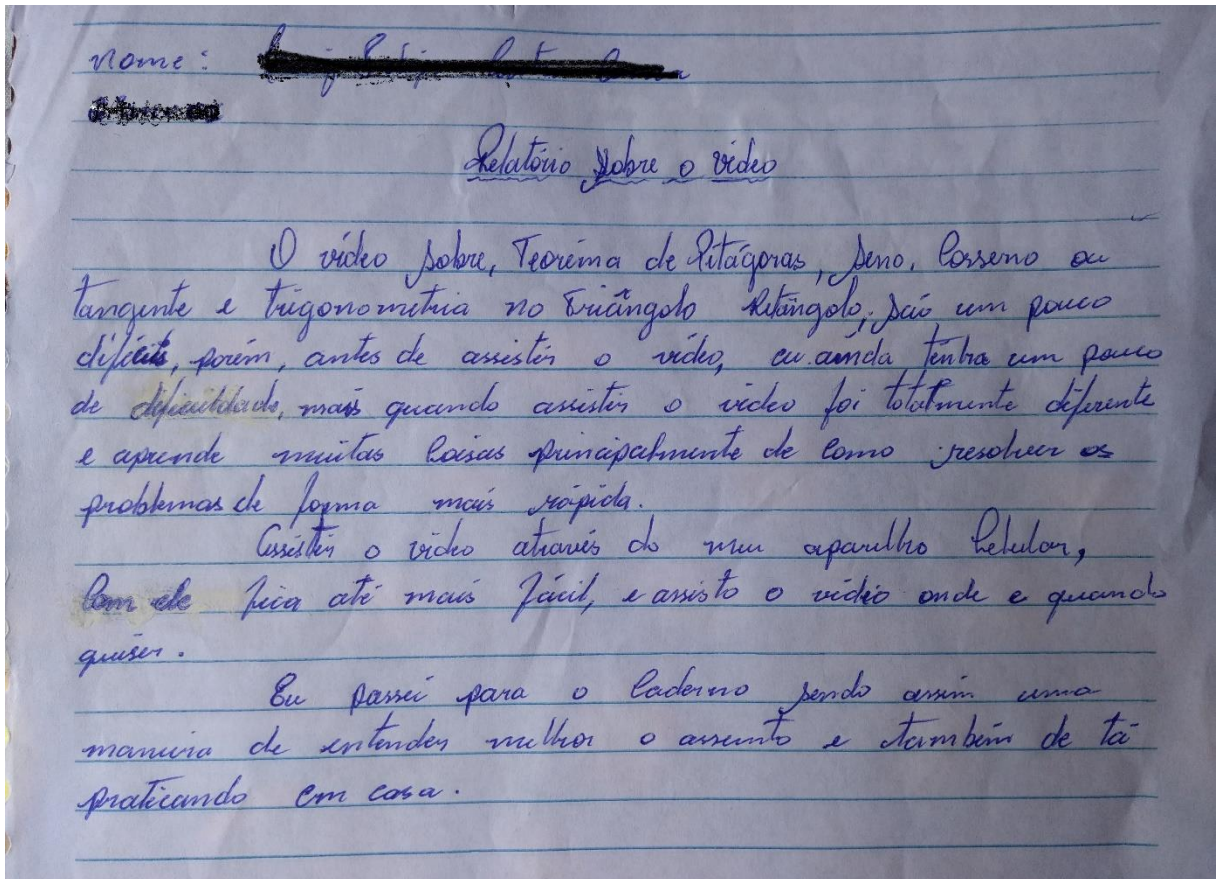 nome:
Relatório sobre o vídeo
O vídeo sobre, Teorema de Pitágoras, seno, Cosseno ou
tangente e trigonometria no triângolo Retângolo, são um pouco
difíceis, porém, antes de assistir o vídeo, eu ainda tinha um pouco
de dificuldade, mais quando assistir o vídeo foi totalmente diferente
e aprende muitas Coisas principalmente de como resolver os
problemas de forma mais rápida.
Assistir o vídeo através do meu aparelho Celular,
Com ele fica até mais fácil, e assisto o vídeo onde e quando
quiser.
Eu passei para o Caderno sendo assim uma
maneira de entender melhor o assunto e também de tá
praticando em casa.